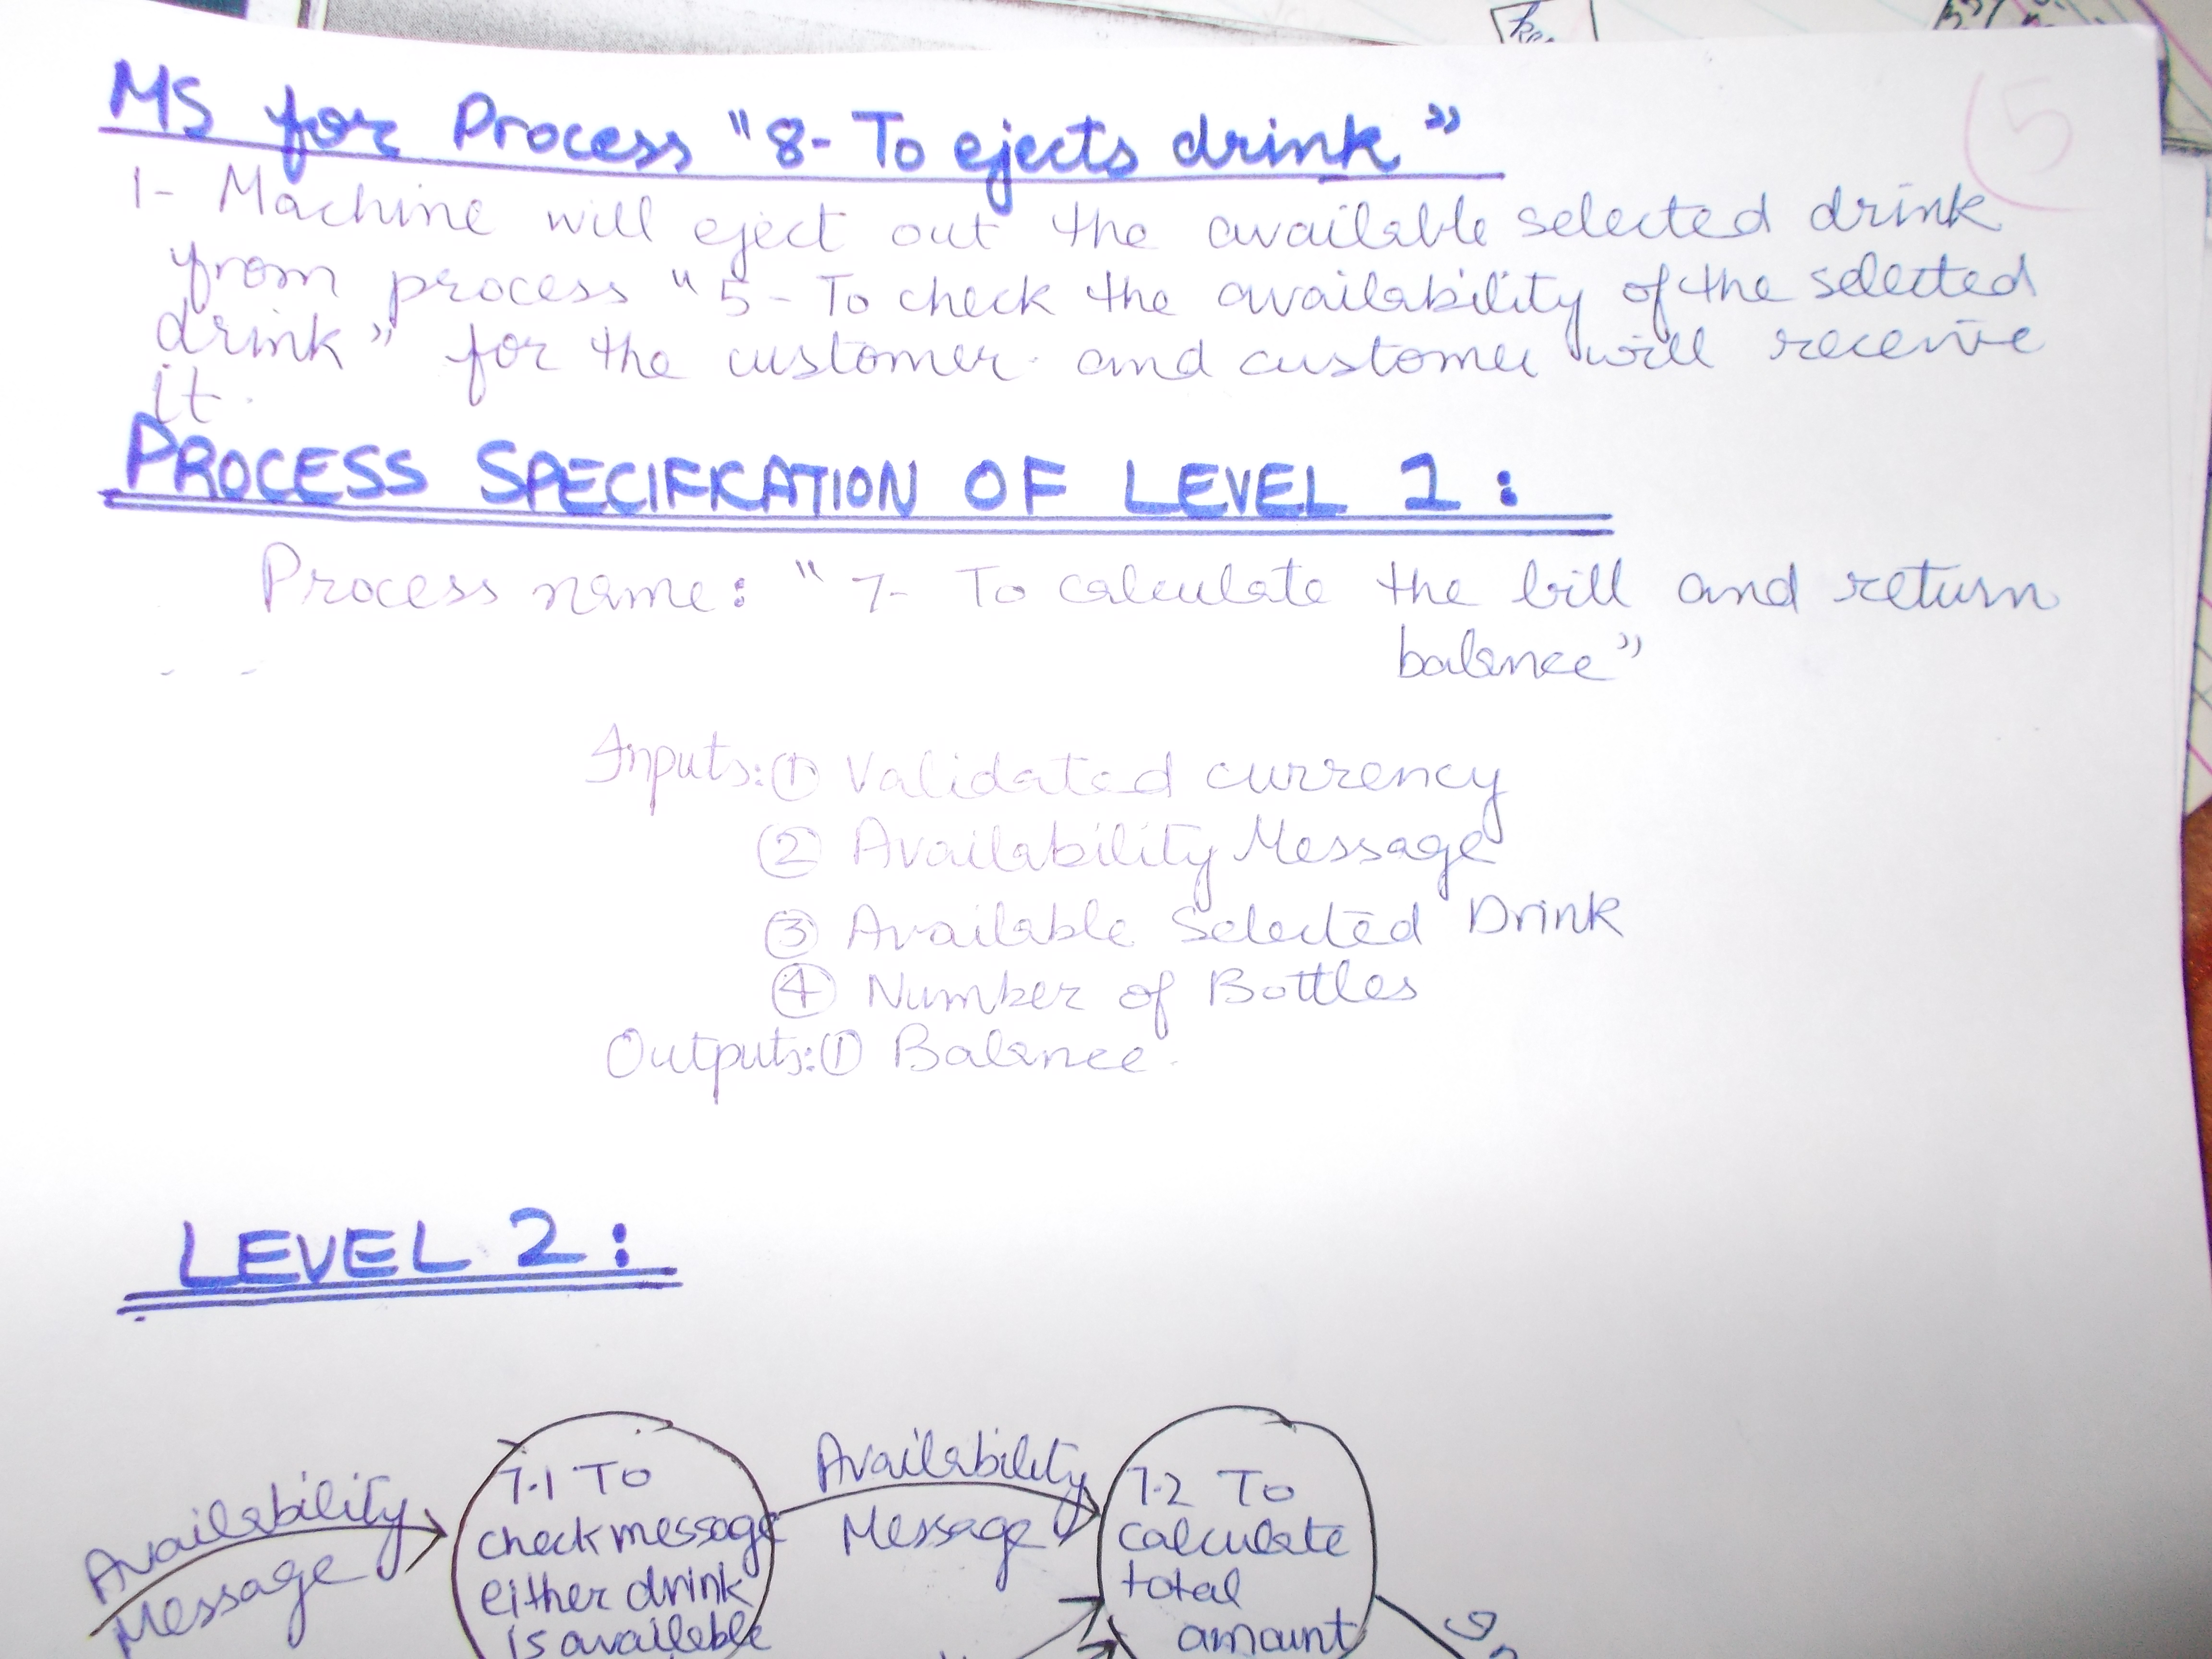 5
MS for Process "8- To ejects drink"
1- Machine will eject out the available selected drink
from process "5- To check the availability of the selected
drink" for the customer and customer will receive
it.
PROCESS SPECIFICATION OF LEVEL 1:
Process name: "7- To calculate the bill and return
balance"
Inputs: ① Validated currency
② Availability Message
③ Available Selected Drink
④ Number of Bottles
Outputs: ① Balance.
LEVEL 2:
Availability
Message
7.1 To
check message
either drink
is available
Availability
Message
7.2 To
calculate
total
amount